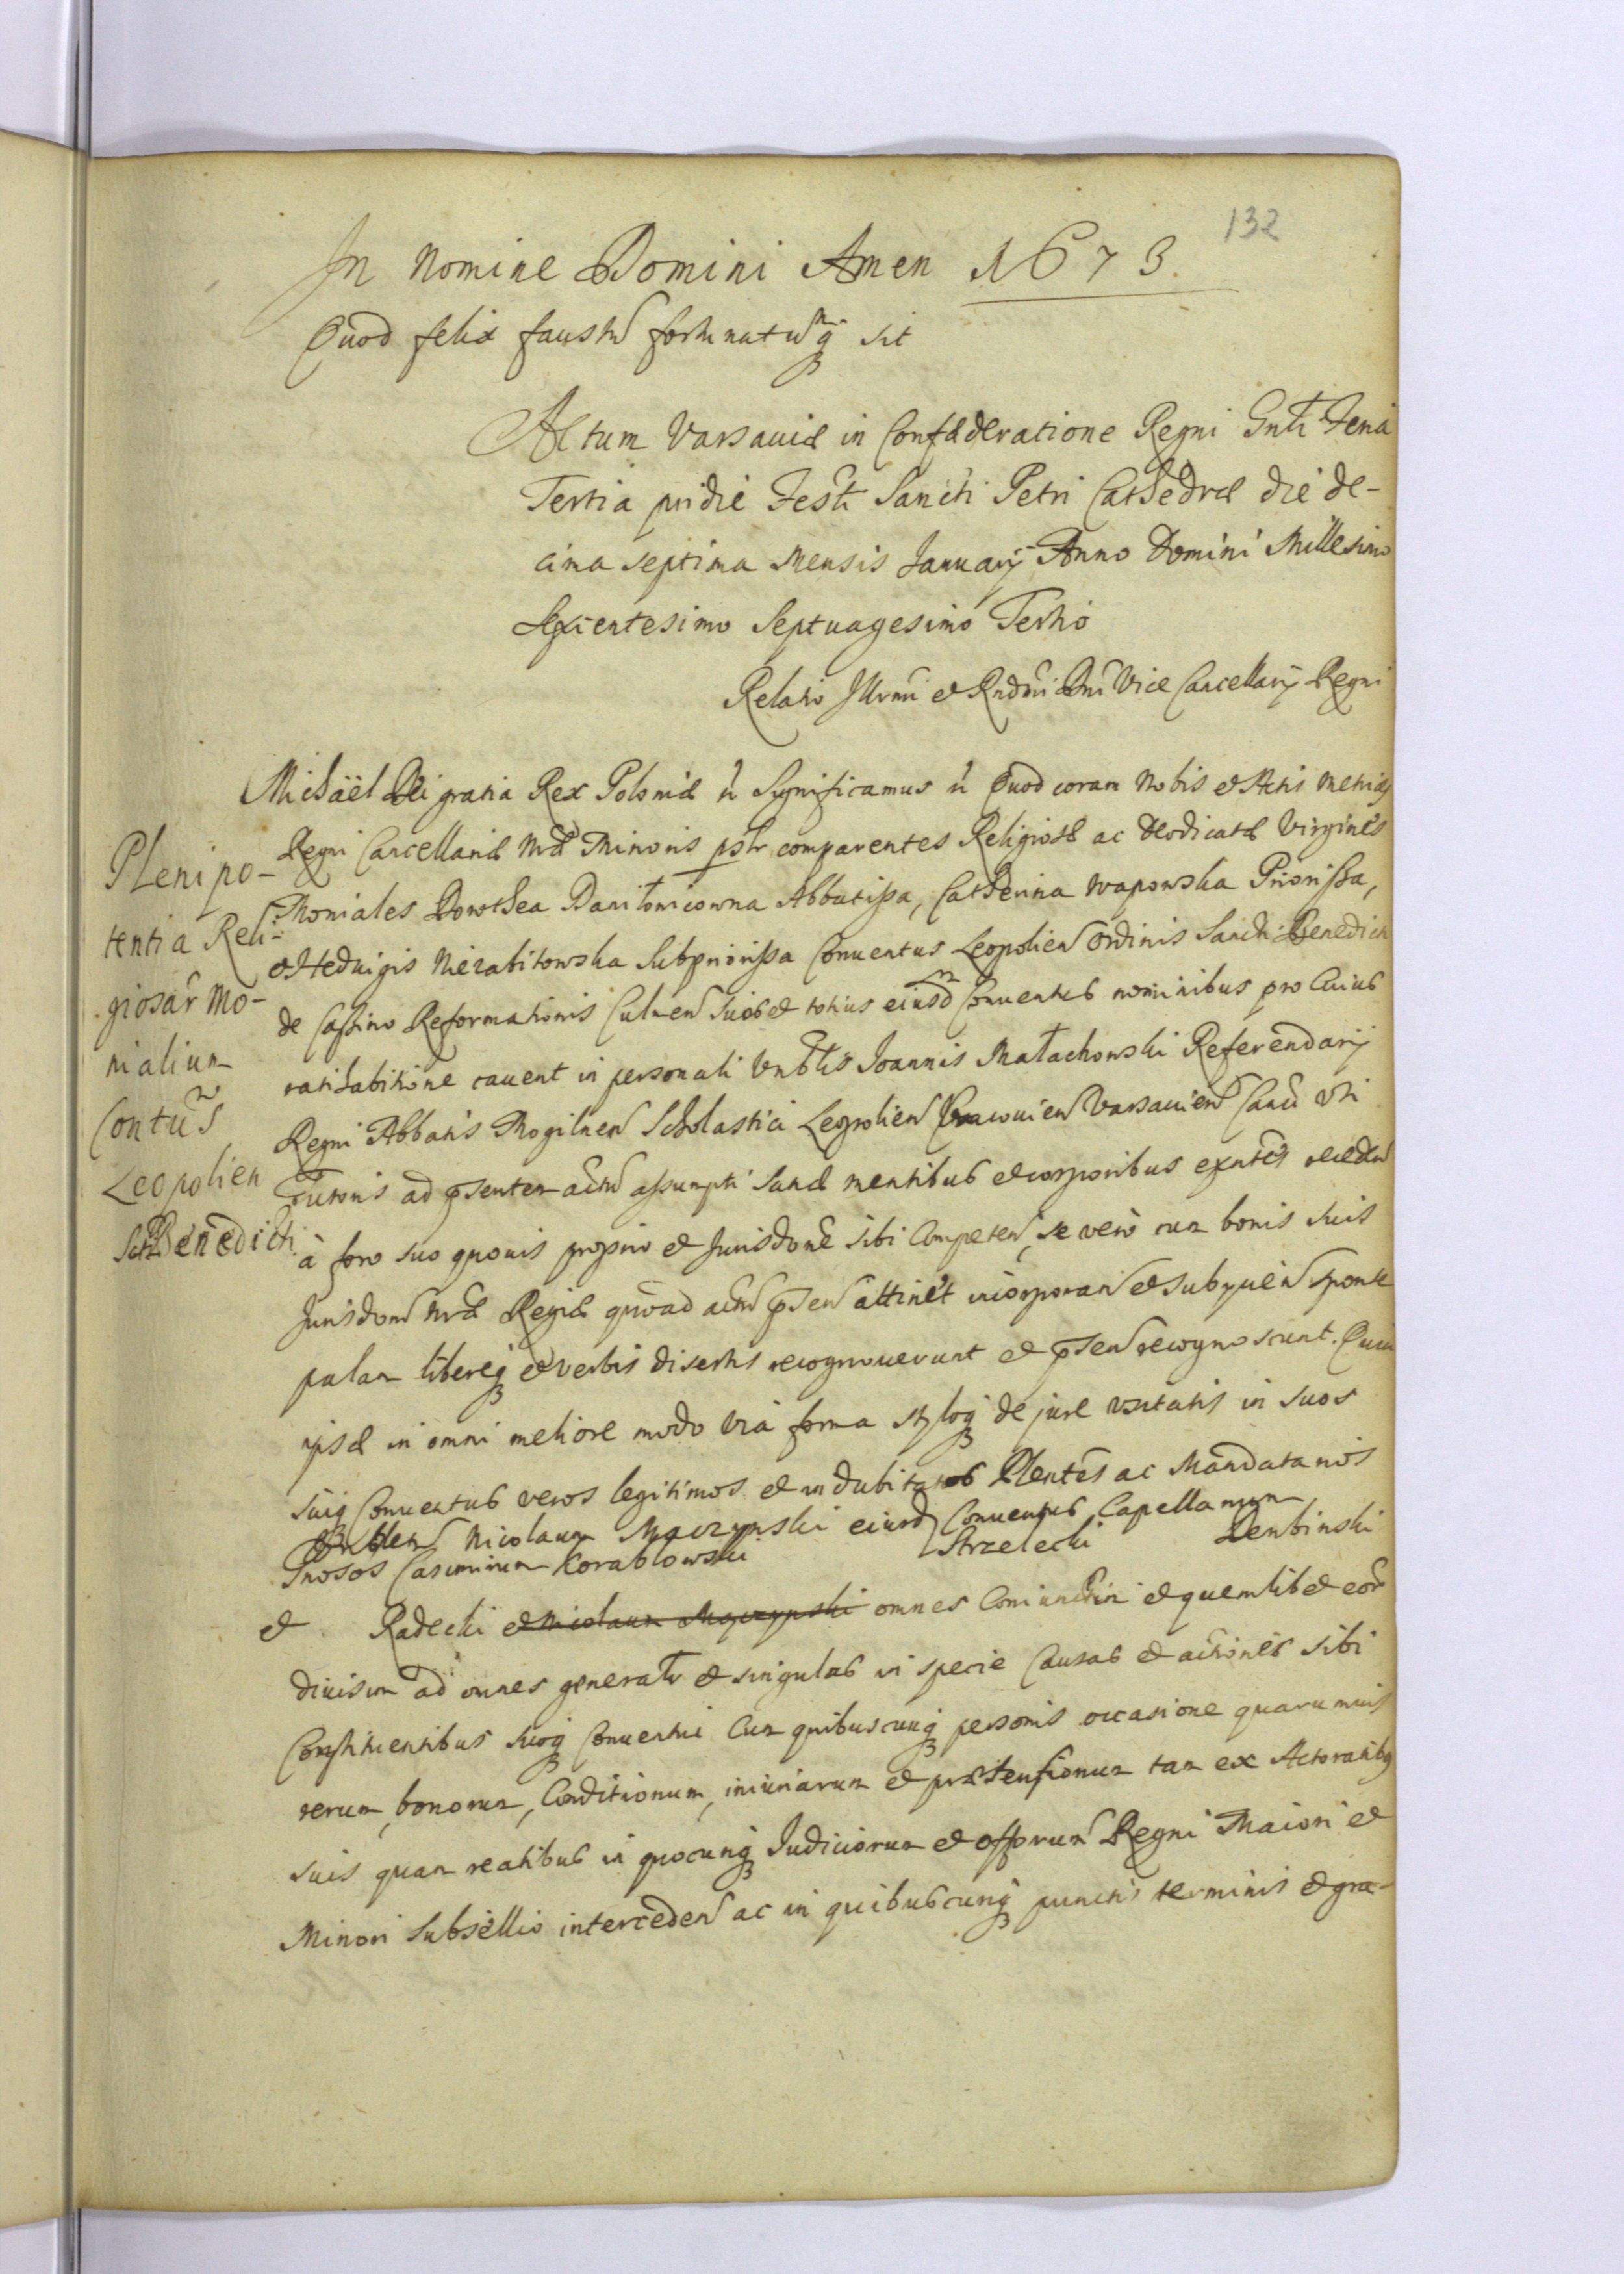 132
In Nomine Domini Amen 1673.
Quod felix faustũ fortunatũq sit
Actum Varsaviæ in Confæderatione Regni Gnli Feria
Tertia pridie Festi Sancti Petri Cathedræ die de-
cima septima Mensis Januarij Anno Domini Millesimo
Sexcentesimo Septuagesimo Tertio
Relatio Illrmi et Rndmi Dni Vice Cancellarij Regni
Michaël Dei gratia Rex Poloniæ Significamus Quod coram Nobis et Actis Metrices
Regni Cancellariæ Nræ Minoris pstr comparentes Religiosæ ac Deodicatæ Virgines
Moniales Dorothea Daniłowiczowna Abbatissa, Catherina Wapowska Priorissa,
et Hedvigis Nierabitowska Subpriorissa Conventus Leopolien Ordinis Sancti Benedicti
de Cassino Reformationis Culmen suis et totius eiusd Conventus nominibus pro Cuius
ratihabitione cavent in personali Vnblis Joannis Małachowski Referendarij
Regni Abbatis Mogilnen Scholastici Leopolien Cracovien Varsavien Canci vti
Tutoris ad psentem actũ assumpti sanæ mentibus et corporibus exntes recedũ
à foro suo quovis proprio et Jurisdone sibi Competen, se vero cum bonis suis
Jurisdoni Nræ Regiæ quoad actũ psen attinet incorporan et subyicien sponte
palam libereq et verbis disertis recognoverunt et psen recognoscunt. Quia
ipsæ in omni meliore modo via forma styloq de jure vsitatis in suos
suiq Conventus veros legitimos et indubitatos Plentes ac Mandatarios
Vnblem Nicolaum Mączynski eiusd Conventus Capellanum
Gnosos Casimirum Korabłowski Strzelecki Dembinski
et Radecki et Nicolaum Mączynski omnes Coniunctim et quemlibet eor
divisim ad omnes generalr et singulas in specie Causas et actiones sibi
Constituentibus suoq Conventui Cum quibuscunq personis occasione quarumvis
rerum, bonorum, Conditionum, iniuriarum et prætensionum tam ex Actoratibq
suis quam reatibus in quocunq Judiciorum et offorum Regni Maiori et
Minori Subsellio interceden ac in quibuscunq punctis terminis et gra-
Plenipo-
tentia Reli-
giosar Mo-
nialium
Contus
Leopolien
Scti Benedicti